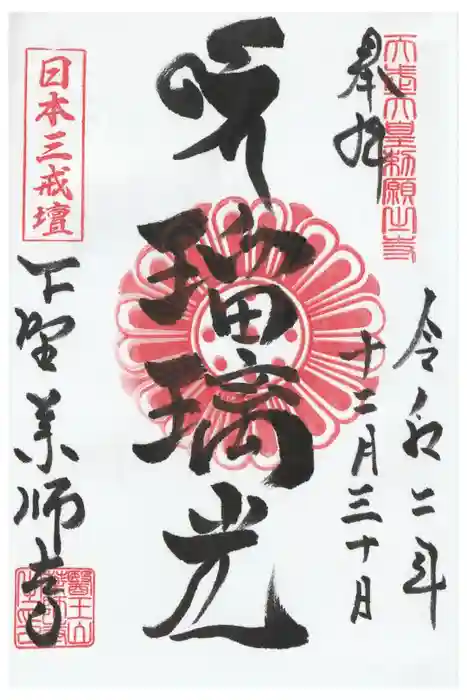 天武天皇勅願之寺
奉拝
令和二年
十二月三十日
瑠璃光
日本三戒壇
下野薬師寺